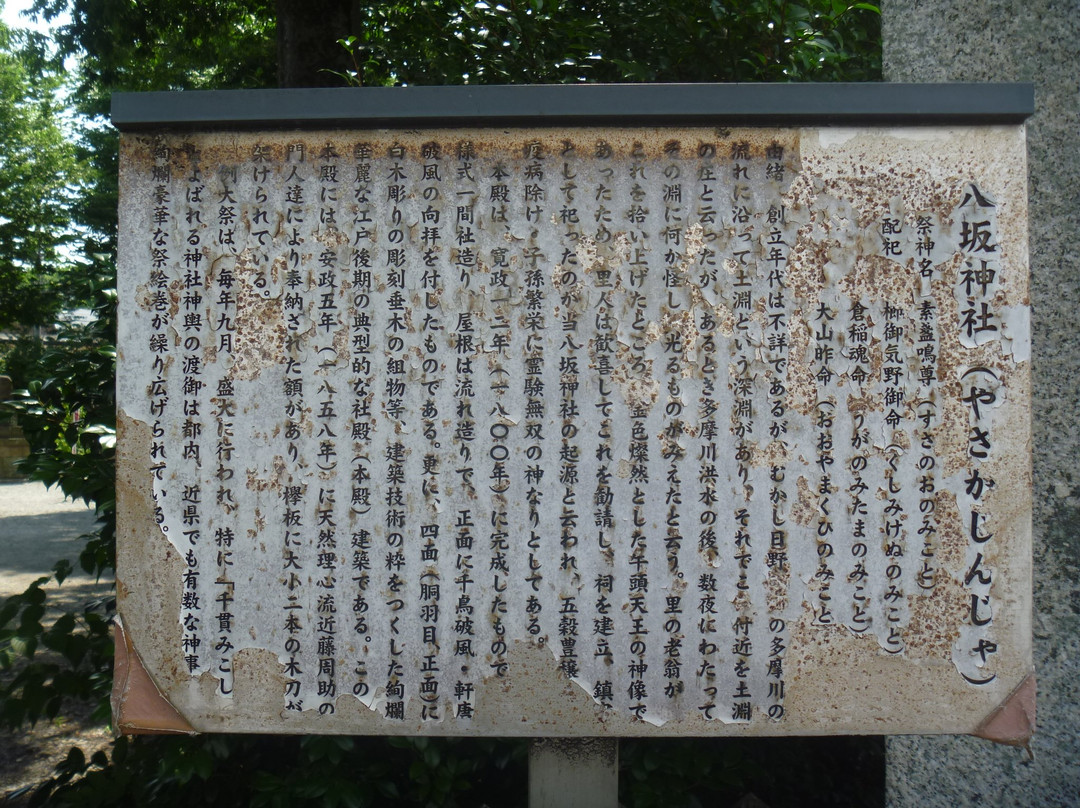 八坂神社（やさかじんじゃ）
祭神名 素盞鳴尊（すさのおのみこと）
配祀 櫛御気野御命（くしみけぬのみこと）
倉稲魂命（うがのみたまのみこと）
大山昨命（おおやまくひのみこと
由緒、創立年代は不詳であるが、むかし日野 の多摩川の
流れに沿って土淵という深淵があり、それでこ 付近を土淵
の庄と云ったが、あるとき多摩川洪水の後、数夜にわたって
その淵に何か怪しい光るものがみえたと云う。里の老翁が
これを拾い上げたところ、金色燦然とした牛頭天王の神像で
あったため、里人は歓喜してこれを勧請し、祠を建立、鎮
として祀ったのが当八坂神社の起源と云われ、五穀豊穣
疫病除け・子孫繁栄に霊験無双の神なりとしてある。
本殿は、寛政一二年（一八〇〇年）に完成したもので
様式一間社造り、屋根は流れ造りで、正面に千鳥破風・軒唐
破風の向拝を付したものである。更に、四面（胴羽目、正面）に
白木彫りの彫刻垂木の組物等、建築技術の粋をつくした絢爛
華麗な江戸後期の典型的な社殿（本殿）建築である。この
本殿には、安政五年（一八五八年）に天然理心流近藤周助の
門人達により奉納された額があり、欅板に大小二本の木刀が
架けられている。
例大祭は、毎年九月、盛大に行われ、特に「千貫みこし
よばれる神社神輿の渡御は都内、近県でも有数な神事
絢爛豪華な祭絵巻が繰り広げられている。